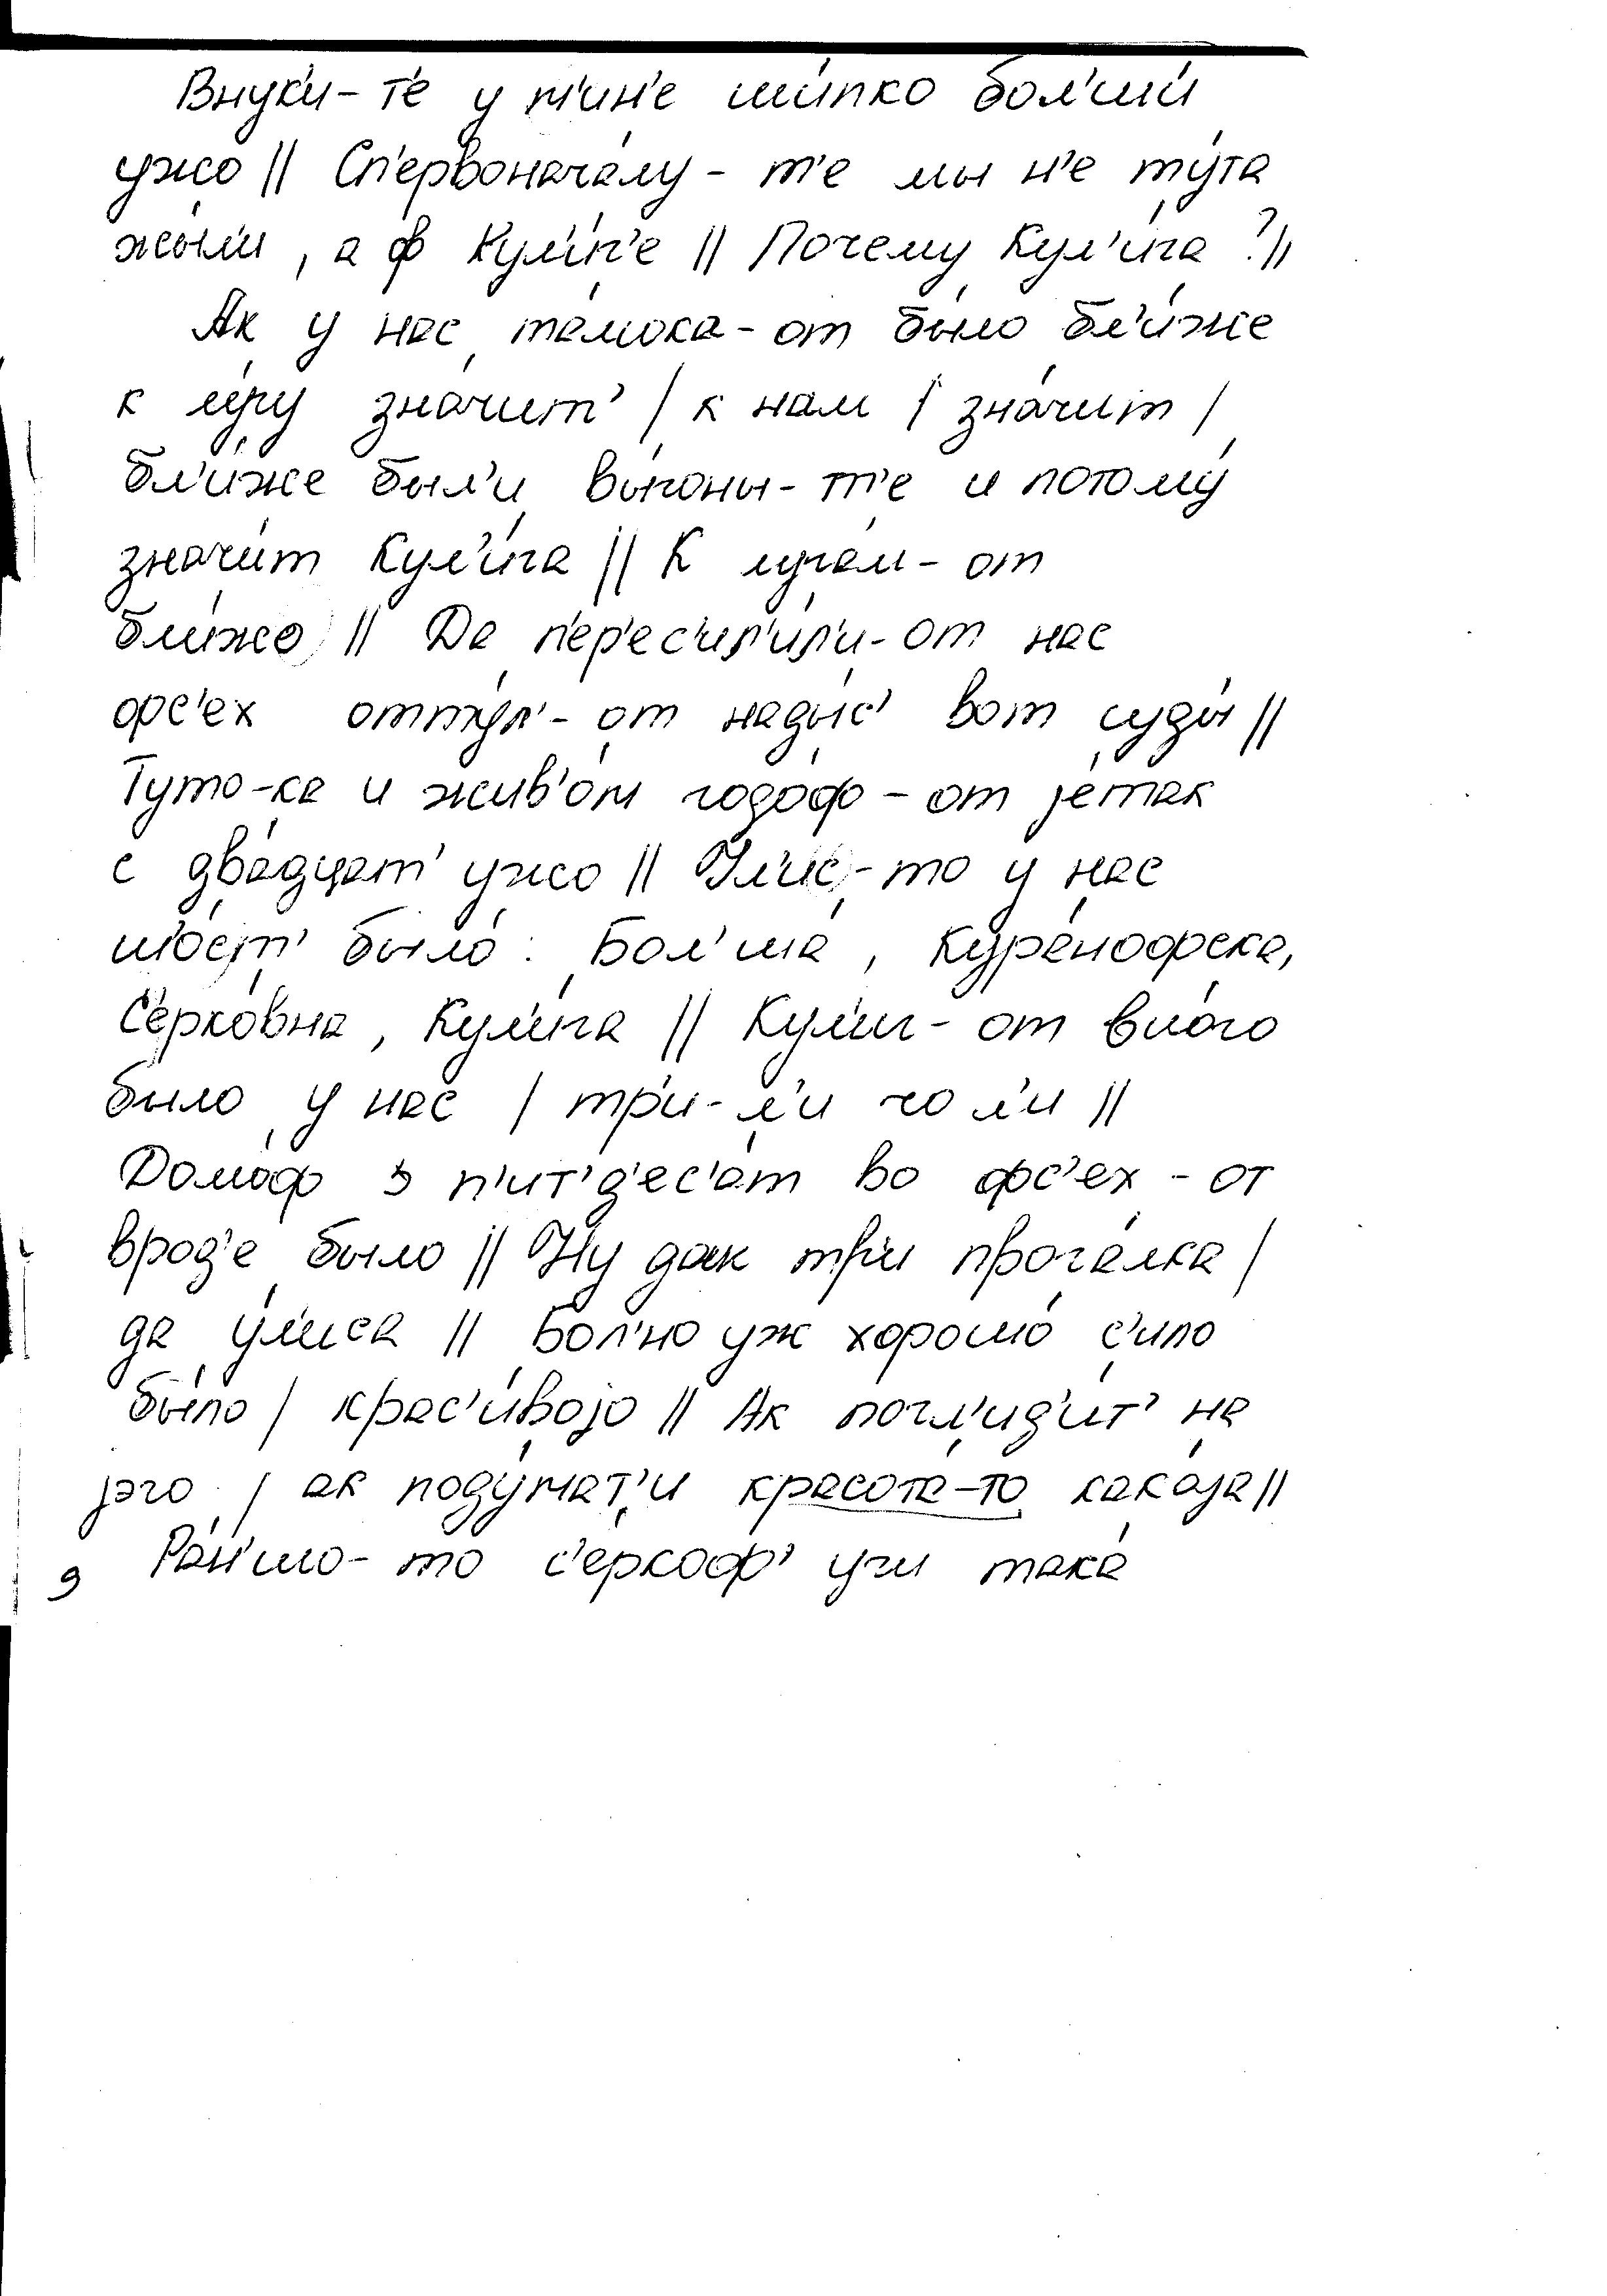 Внуки́-т'е у м'ин'е ши́пко бол'ши́
ужо || Сп'ервонача́лу-т'е мы н'е ту́та
жы́л'и, а ф Кул'и́г'е || Почему Кул'и́га ? ||
Ак у нас та́мока-от бы́ло бл'и́же
к лу́гу зна́чит' | к нам | зна́чит |
бл'и́же был'и вы́гоны-т'е и потому́
значи́т Кул'и́га || К луга́м-от
бл'и́жо || Да п'ер'ес'ил'и́л'и-от нас
фс'ех отту́л'-от нады́с' вот суды́ ||
Ту́то-ка и жив'о́м годо́ф-от је́так
с два́дцат' ужо || Ул'ис-то у нас
ш'ост' было́ : Бол'ша́, Куре́нофска,
С'ерко́вна, Кул'и́га || Кул'и́г-от вно́го
было у нас | тр'и-л'и чо л'и ||
Домо́ф з п'ит'д'ес'а́т во фс'ех-от
врод'е бы́ло || Ну дак тр'и прога́лка |
да у́л'иса || Бол'но уж хорошо́ с'ило́
бы́ло | крас'и́војо || Ак погл'ид'и́т' на
јэго́ | ак поду́мат'и красота́-то кака́ја ||
Ра́н'шо-то с'е́ркоф' учи така́
9